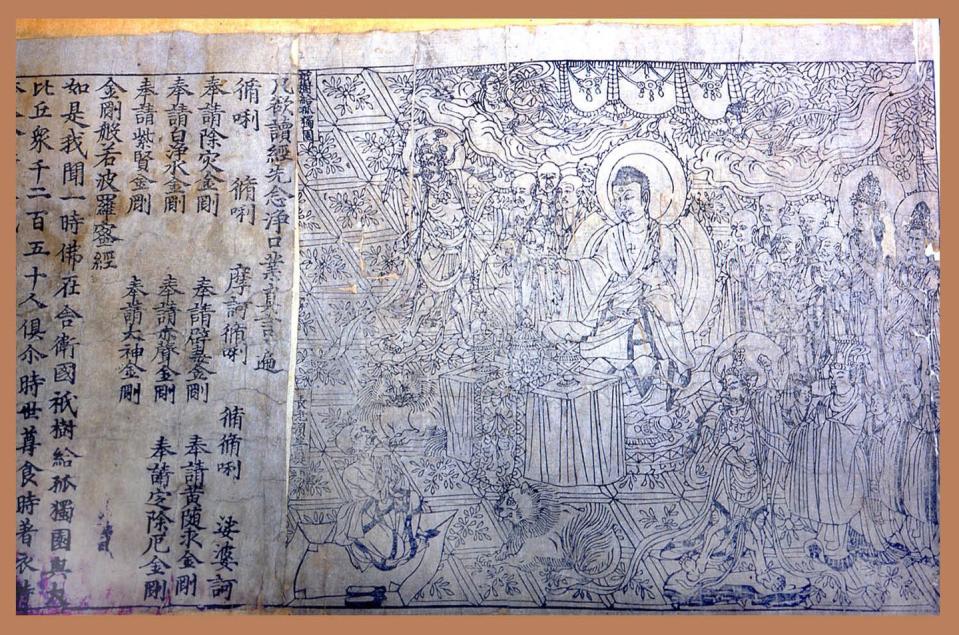 祇樹給孤獨園
長老須菩提
凡欲讀經先念淨口業真言一遍
脩唎 脩唎 摩訶脩唎 脩脩唎 娑婆訶
奉請除灾金剛 奉請辟毒金剛 奉請黄隨求金剛
奉請白淨水金剛 奉請赤聲金剛 奉請定除厄金剛
奉請紫賢金剛 奉請大神金剛
金剛般若波羅蜜經
如是我聞一時佛在舍衛國祇樹給孤獨園與大
比丘衆千二百五十人俱尒時世尊食時著衣持